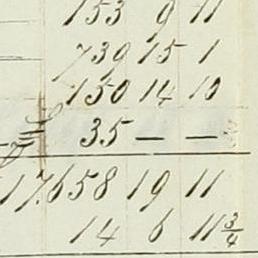 153 9 11
739 15 1
150 14 10
35 — —
17.658 19 11
14 6 11¾